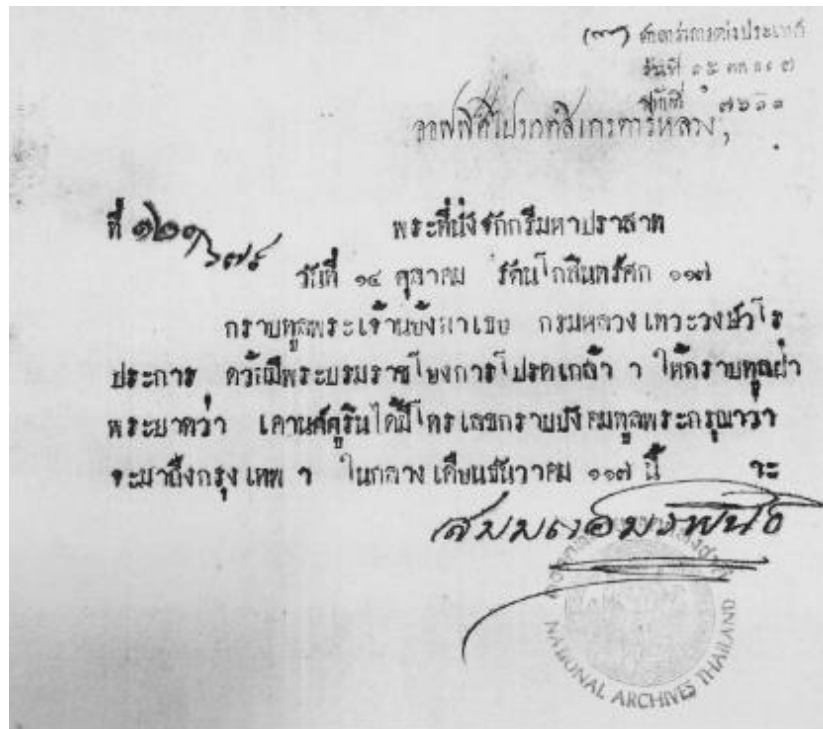 ศาลาว่าการต่างประเทศ
วันที่ ๑๕
ออฟฟิศไปรเวตสิเกรตารีหลวง,
ที่ พระที่นั่งจักกรีมหาปราสาท
วันที่ ๑๔ ตุลาคม รัตนโกสินทรศก ๑๑๗
กราบทูลพระเจ้าน้องยาเธอ กรมหลวงเทวะวงษ์วโร
ประการ ด้วยมีพระบรมราชโองการโปรดเกล้า ฯ ให้กราบทูลฝ่า
พระบาทว่า เคานต์ตูรินได้มีโทรเลขกราบบังคมทูลพระกรุณาว่า
จะมาถึงกรุงเทพ ฯ ในกลางเดือนธันวาคม ๑๑๗ นี้ ฯะ
สมมตอมรพันธุ์
NATIONAL ARCHIVES THAILAND